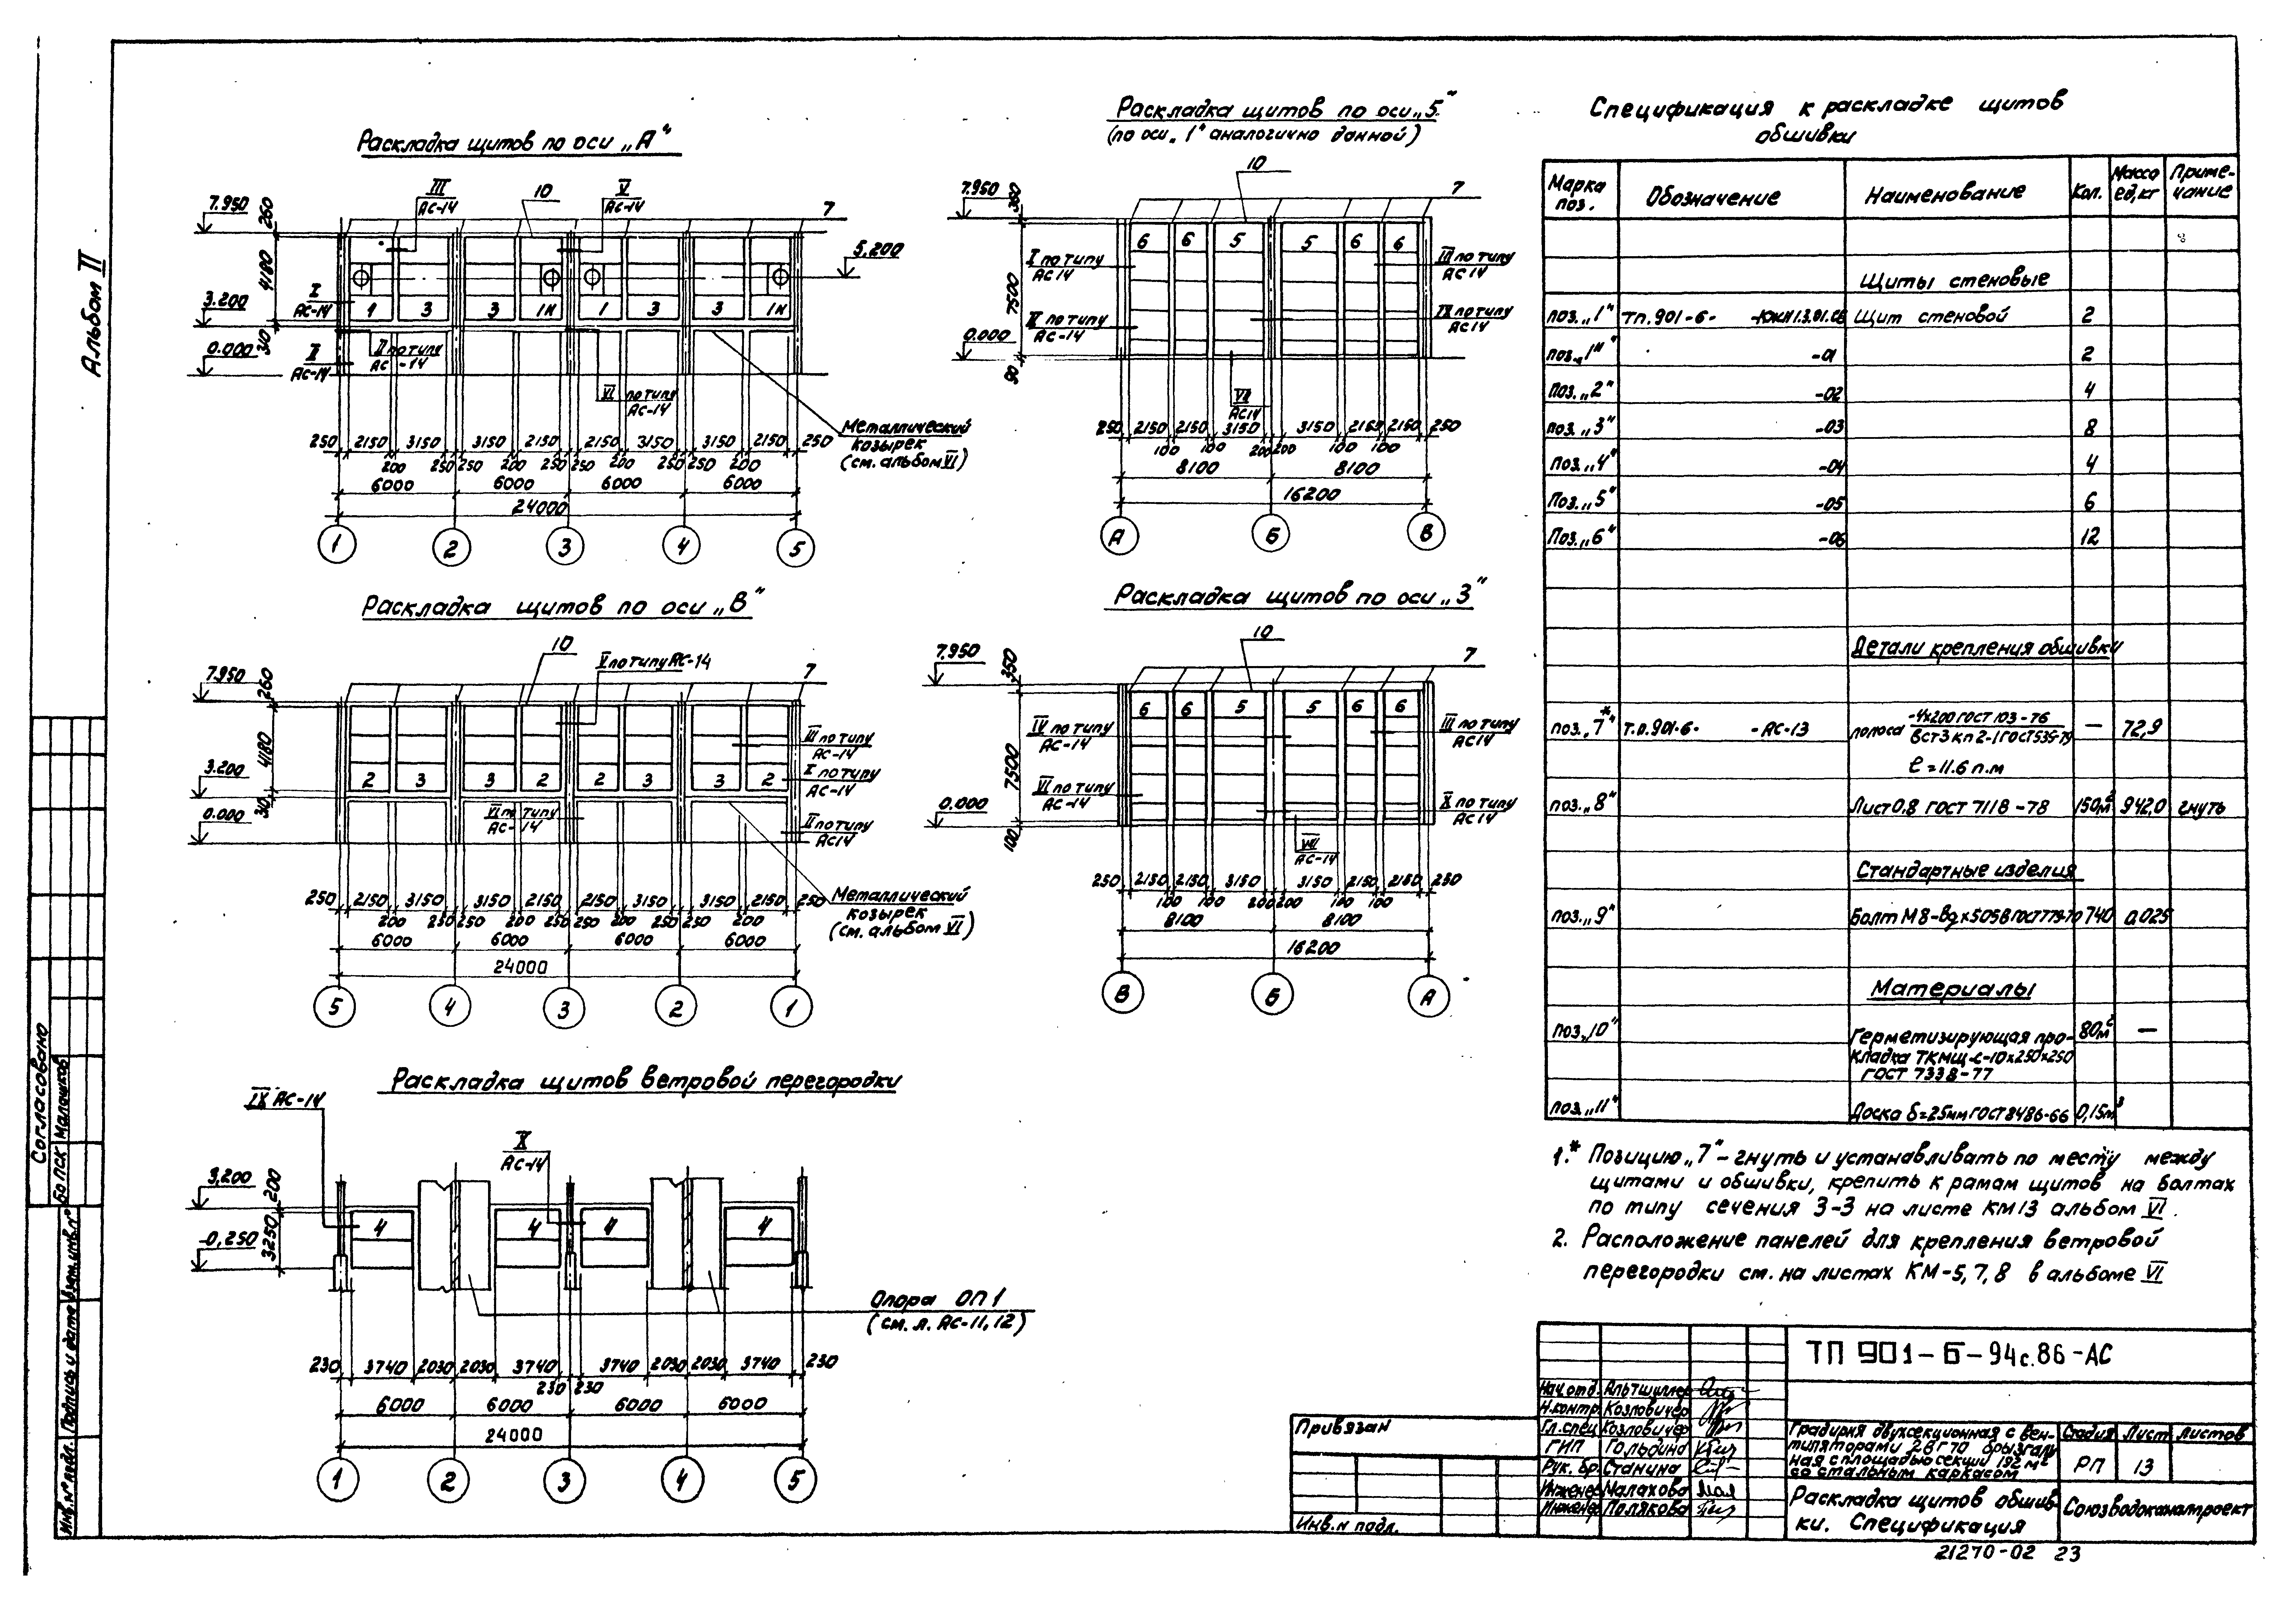 Альбом II
Раскладка щитов по оси „А“
III
АС-14
10
V
АС-14
7
7.950
260
5.200
4180
3.200
I
АС-14
1 3 3 1н 1 3 3 1н
340
0.000
II
АС-14
II по типу
АС-14
VI по типу
АС-14
Металлический
козырек
(см. альбом VI)
250 2150 3150 3150 2150 2150 3150 3150 2150 250
200 250 250 200 250 250 200 250 250 200
6000 6000 6000 6000
24000
1 2 3 4 5
Раскладка щитов по оси „5“
(по оси „1“ аналогично данной)
10
7
7.950
6 6 5 5 6 6
I по типу
АС14
III по типу
АС14
7500
АС-14
АС14
0.000
90
АС14
250 2150 2150 3150 3150 2150 250
100 100 200 200 100 100
8100 8100
16200
А Б В
Раскладка щитов по оси „В“
10
V по типу АС-14
7
7.950
260
4180
III по типу
АС-14
3.200
2 3 3 2 2 3 3 2
I по типу
АС-14
0.000
VI по типу
АС-14
II по типу
АС14
Металлический
козырек
(см. альбом VI)
250 2150 3150 3150 2150 2150 3150 3150 2150 250
200 250 250 200 250 250 200 250 250 200
6000 6000 6000 6000
24000
5 4 3 2 1
Раскладка щитов по оси „3“
10
7
7.950
350
6 6 5 5 6 6
IV по типу
АС-14
III по типу
АС14
7500
VI по типу
АС-14
X по типу
АС14
0.000
100
АС-14
250 2150 2150 3150 3150 2150 2150 250
100 100 200 200 100 100
8100 8100
16200
В Б А
Раскладка щитов ветровой перегородки
IX АС-14
X
АС-14
3,200
200
4 4 4 4
-0,250
3250
Опора ОП1
(см. л. АС-11,12)
230 3740 2030 2030 3740 3740 2030 2030 3740 230
230 230
6000 6000 6000 6000
24000
1 2 3 4 5
Спецификация к раскладке щитов
обшивки
Марка поз. Обозначение Наименование Кол. Масса ед,кг Примечание
Щиты стеновые
поз. „1“ Тп.901-6- Щит стеновой 2
поз. „1н“ -01 2
Поз. „2“ -02 4
поз. „3“ -03 8
поз. „4“ -04 4
Поз. „5“ -05 6
Поз. „6“ -06 12
Детали крепления обшивки
поз. „7“* Т.п.901-6- -АС-13 полоса -4х200 ГОСТ 103-76 — 72,9
ℓ = 11.6 п.м
поз. „8“ Лист 0.8 ГОСТ 7118-78 150м² 942,0 гнуть
Стандартные изделия
поз. „9“ 740 0.025
Материалы
поз. „10“ Герметизирующая про- 80м² —
кладка ТКМЩ-С-10х250х250
ГОСТ 7338-77
поз. „11“ Доска δ=25мм ГОСТ 8486-66 0,15м³
1.* Позицию „7“ - гнуть и устанавливать по месту между
щитами и обшивки, крепить к рамам щитов на болтах
по типу сечения 3-3 на листе КМ13 альбом VI.
2. Расположение панелей для крепления ветровой
перегородки см. на листах КМ-5,7,8 в альбоме VI
ТП 901-6-94с.86-АС
Нач.отд. Альтшуллер
Н.контр. Козловичер
Гл.спец Козловичер
ГИП Гольдина
Рук. бр. Станина
Инженер Малахова
Инженер Полякова
Градирня двухсекционная с вен-
тиляторами 2ВГ70 брызгаль
ная с площадью секций 192 м²
со стальным каркасом
Стадия Лист Листов
РП 13
Раскладка щитов обшив-
ки. Спецификация
Союзводоканалпроект
Привязан
Инв.н подл.
21270-02 23
Согласовано
бо ПСК Малашков
Инв.№ подл. Подпись и дата Взам.инв.№